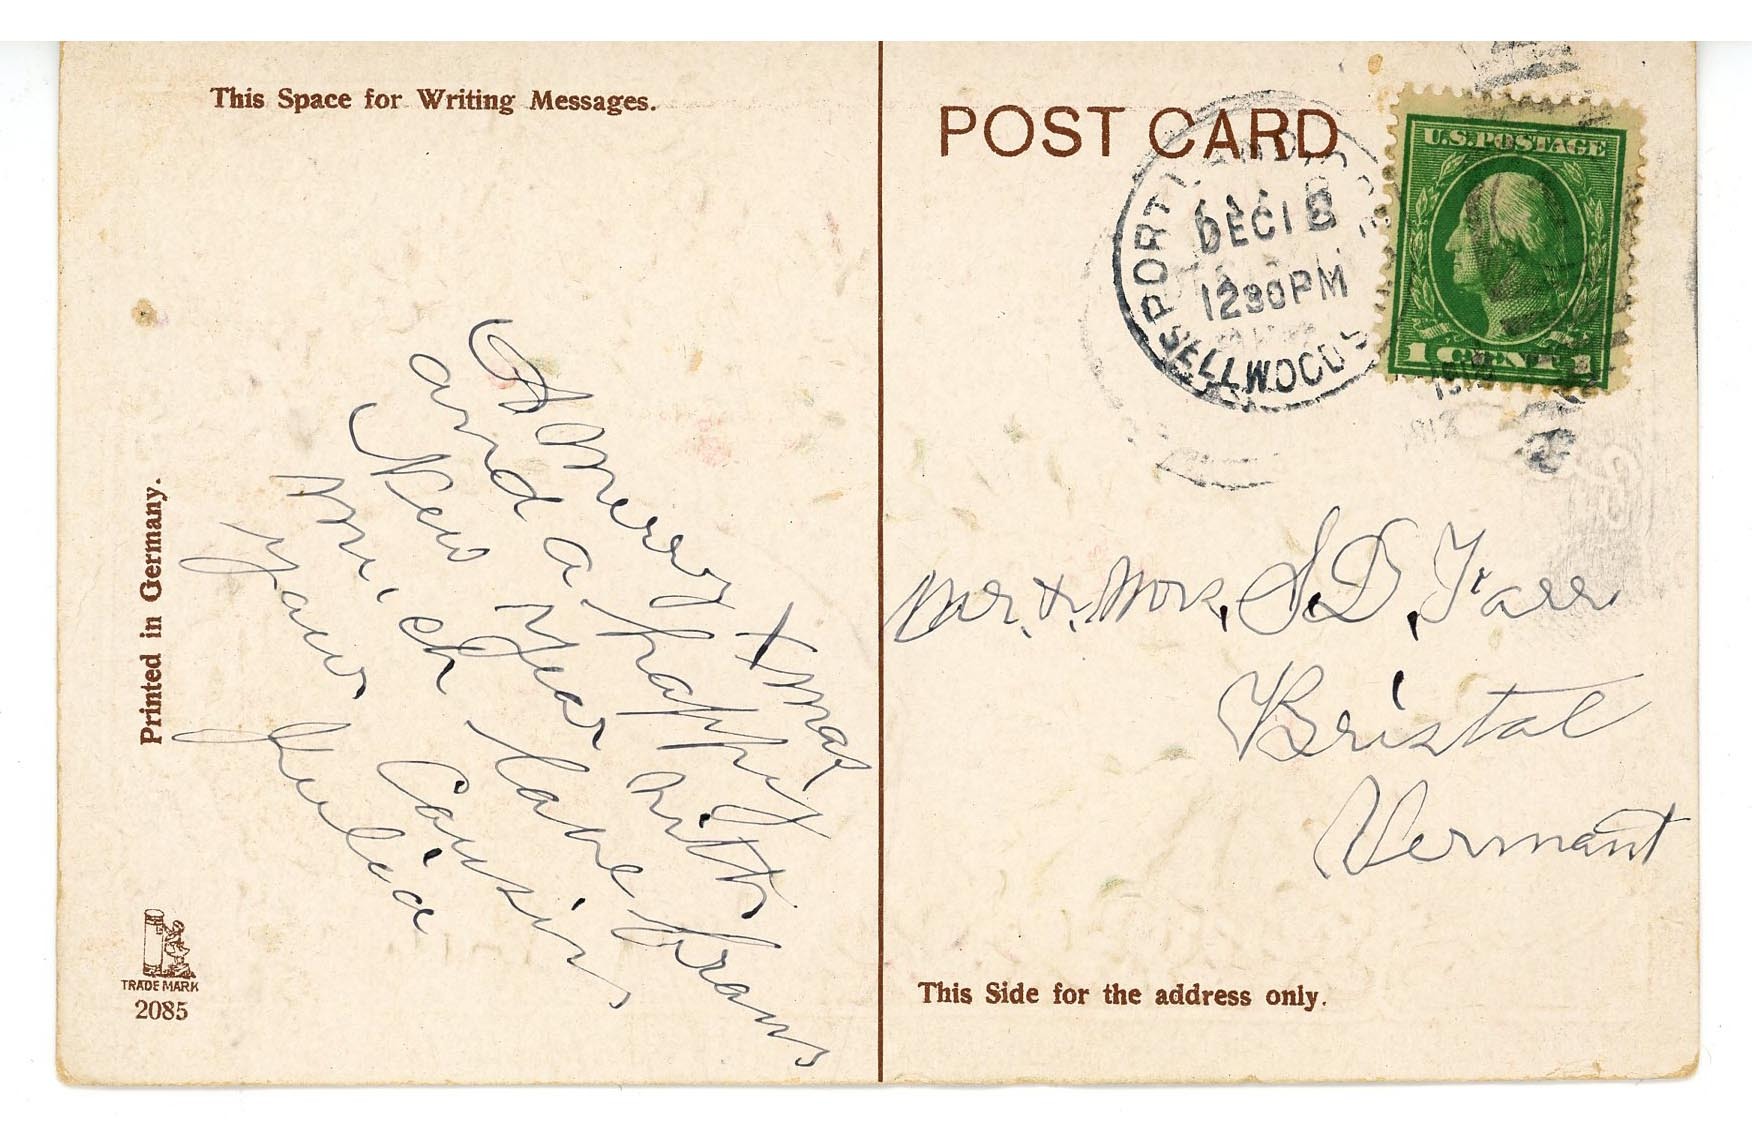 This Space for Writing Messages.
A Merry Xmas
and a happy
New Year with
much love from
your Cousin
Julia
Printed in Germany.
TRADE MARK
2085
POST CARD
PORTLAND
DEC 18
1230PM
SELLWOOD
U.S. POSTAGE
1 CENT 1
Mr. & Mrs. S. D. Farr
Bristol
Vermont
This Side for the address only.